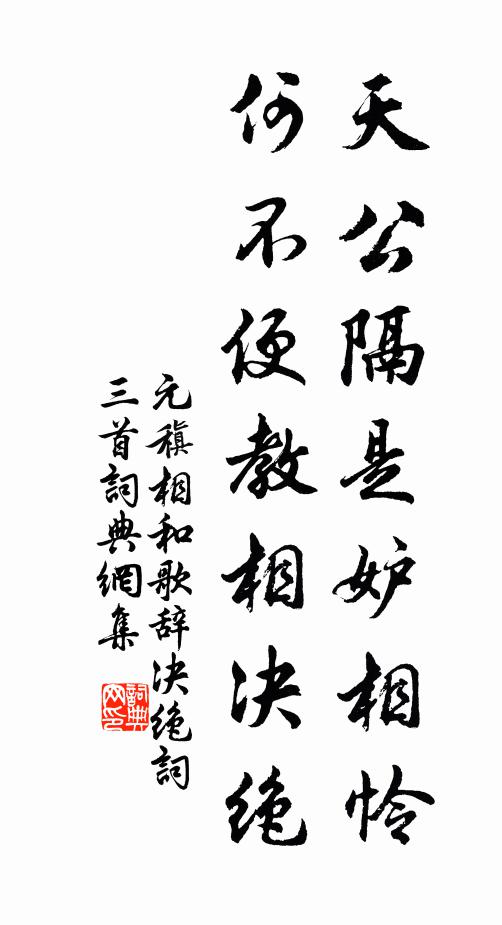 天公隔是妒相怜
何不便教相决绝
元稹相和歌辞决绝詞
三首詞典網集
詞典網印